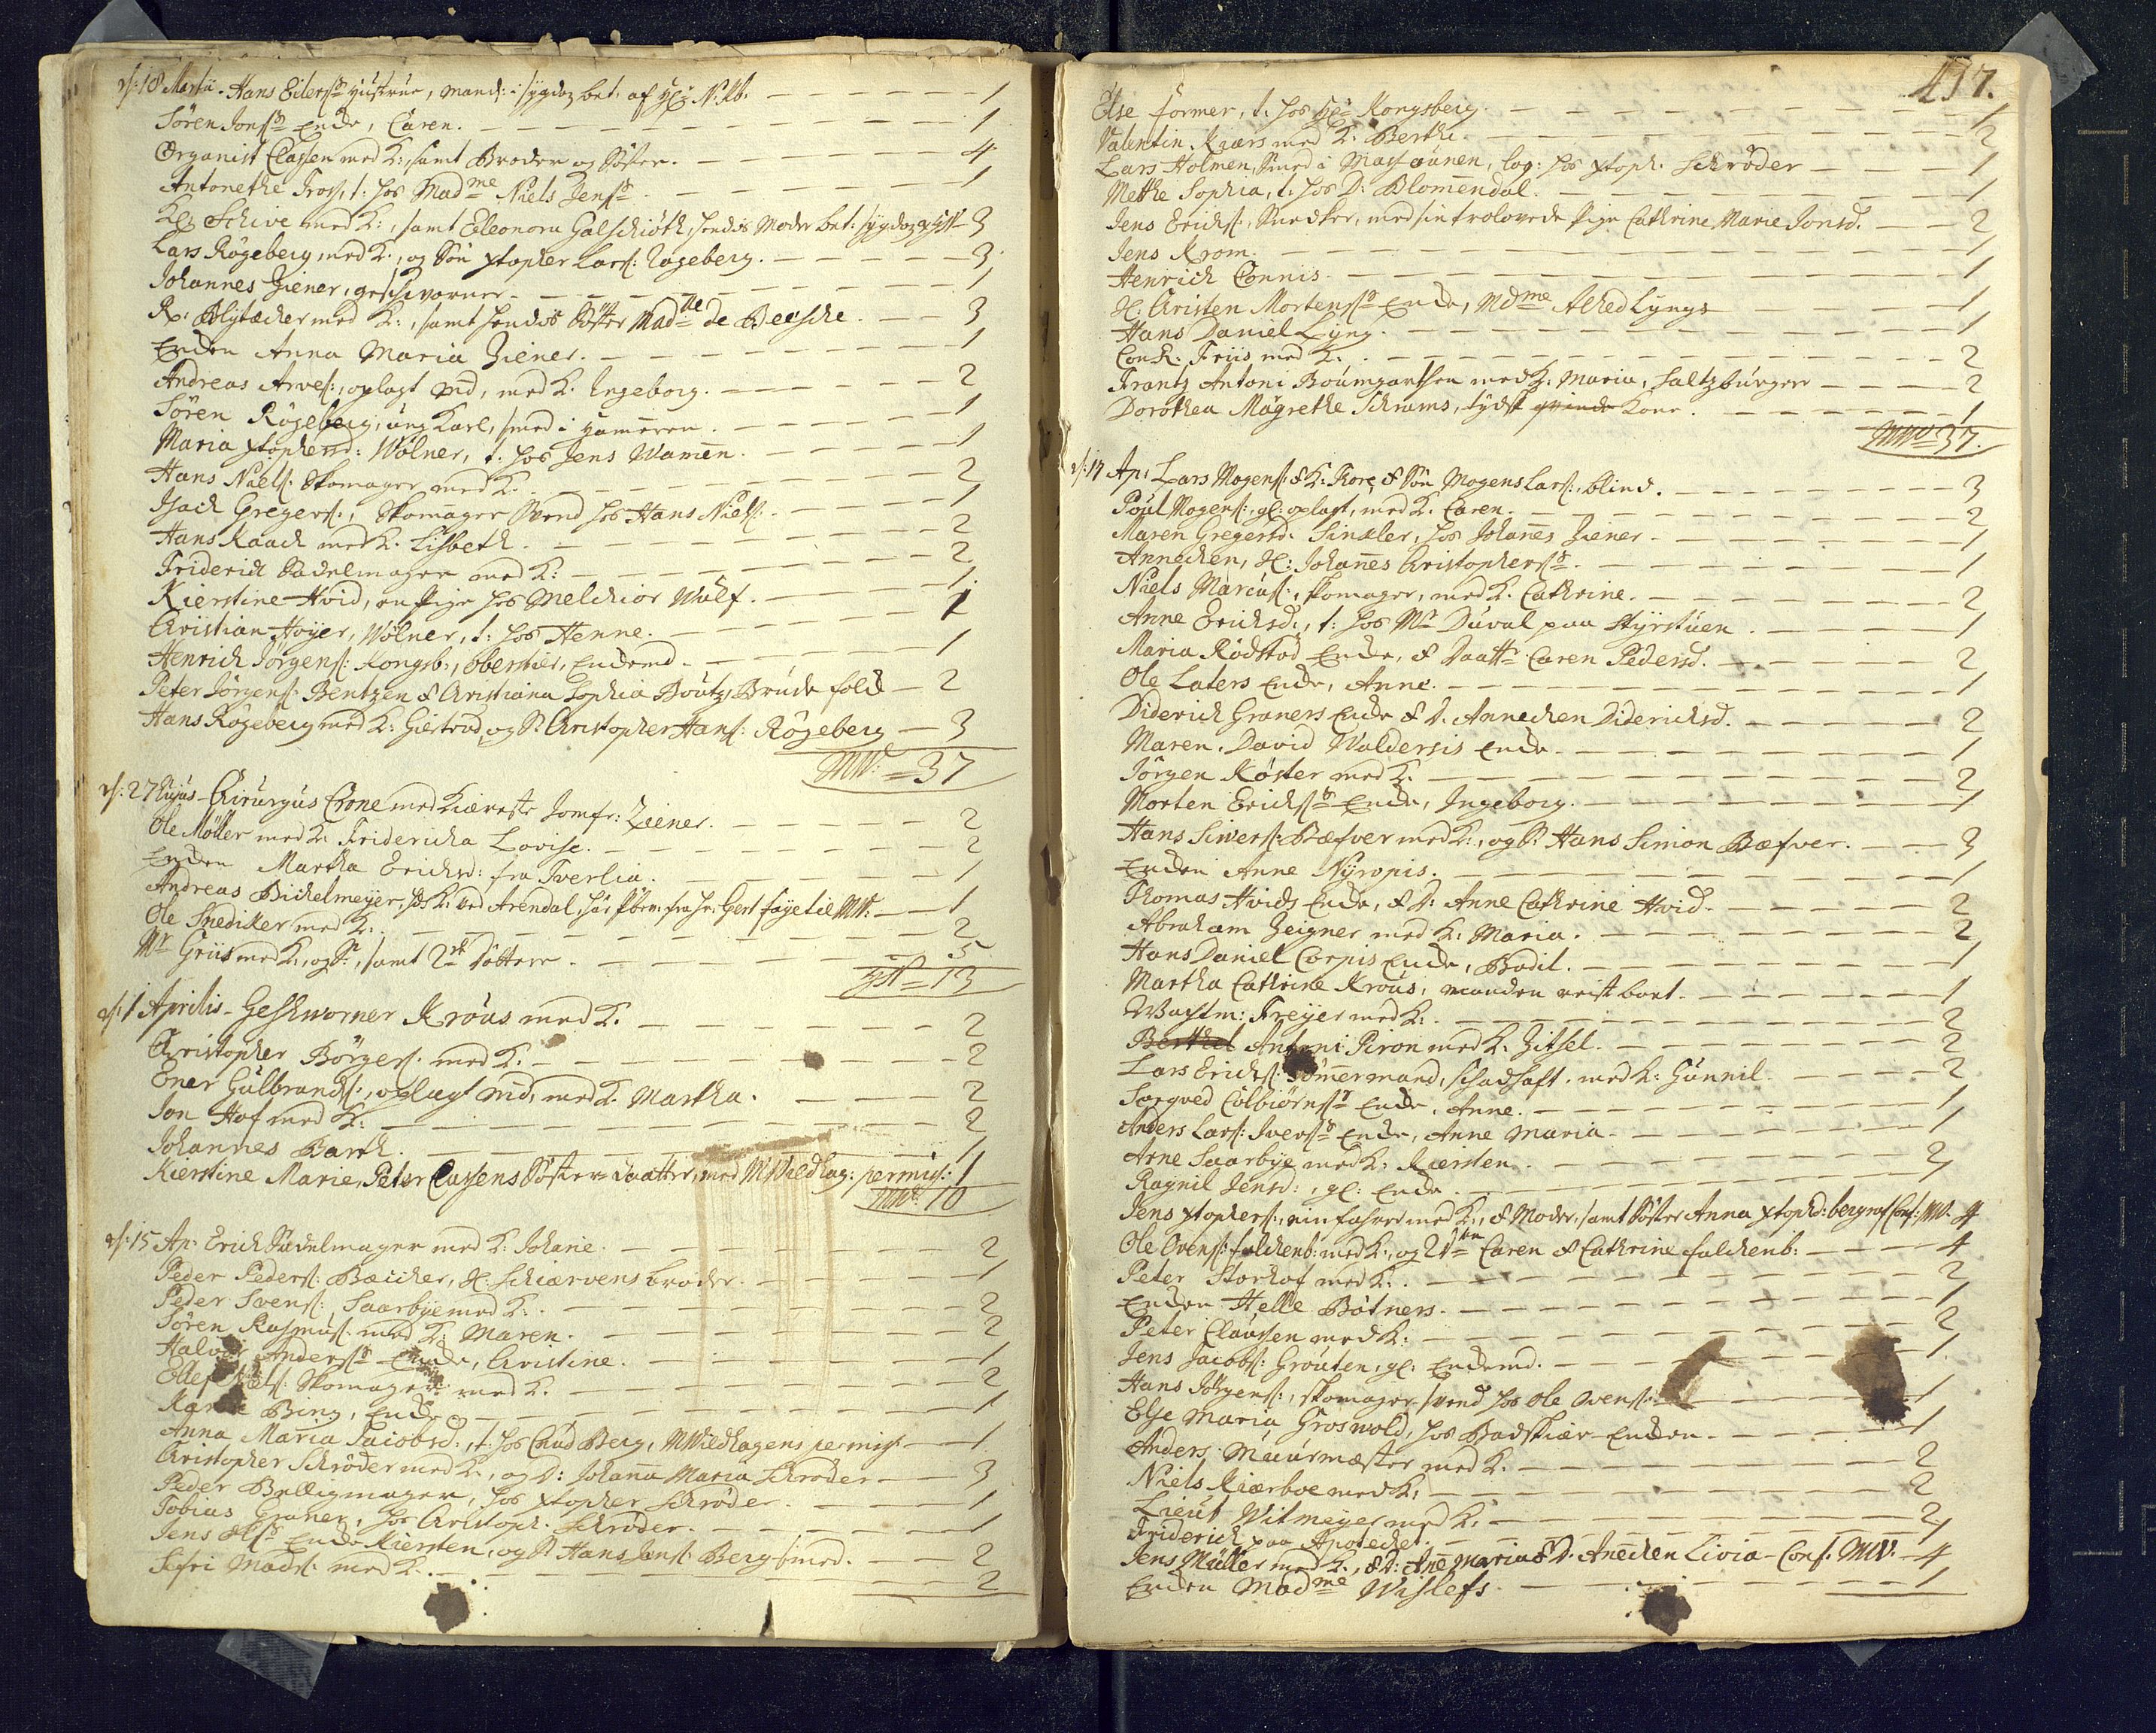 d: 18 Martii. Hans Eilerss. Hustrue, mand: i sygdoz bet. af HE: N: Kb. — 1
Sören Jonss. Enke, Caren. — 1
Organist Classen med K:, samt Broder og Söster. — 4
Antonethe Fros, t. hos Madme Niels Jenss. — 1
HE Schive med K:, samt Eeleonora Galschiöth, hendes Moder bet: sygdoz — 3
Lars Rögeberg med K:, og Sön Xtopher Larss: Rögeberg. — 3
Johannes Ziener, geschworner. — 1
R. Blytæcher med K:, samt hendes Söster Madlle de Beesche. — 3
Enken Anna Maria Ziener. — 1
Andreas Arves:, oplagt md, med K. Ingeborg. — 2
Sören Rögeberg, ung Karl, smed i Hameren. — 1
Maria Xtophersd: Wölner, t. hos Jens Wamen. — 1
Hans Niels: Skomager med K. — 2
Isach Gregers:, Skomager Svend hos Hans Niels:. — 1
Hans Raach med K. Lisbeth. — 2
Friderich Sadelmager med K: — 2
Kierstine Hvid, en Pige hos Melchior Wulf. — 1
Christian Höyer, Wölner, t: hos Henne. — 1
Henrich Jörgens: Kongsb:, oberstier, Enkemd. — 1
Peter Jörgens: Bentzen & Christiana Sophia Boutz, Brude folck — 2
Hans Rögeberg med K: Giertrud, og S. Christopher Hans: Rögeberg — 3
MW: = 37
d: 27 hujus. Chirurgus Crone med Kiæreste Jomfr: Ziener. — 2
Ole Möller med K: Fridericha Lovise. — 2
Enken Martha Ericksd: fra Tverlia. — 1
Andreas Bichelmeyer, hos K. ved Arendal, fra hr: Gert Faye til MW: — 1
Ole Snediker med K: — 2
Mr Griis med K:, og S:, samt 2de döttere. — 5
= 13
d: 1 Aprilis. Geschworner Kröus med K. — 2
Christopher Börges: med K: — 2
Ener Gulbrands:, oplagt md, med K. Martha. — 2
Jon Hof med K: — 2
Johannes Barth. — 1
Kierstine Marie, Peter Classens Söster daatter, med MWedhag: permiss: 1
MW: 10
d: 15 Ap: Erich Sadelmager med K: Johane. — 2
Peder Peders: Bæcker, HE: Schiærvens broder. — 1
Peder Svens: Saarbye med K: — 2
Sören Rasmus: med K: Maren. — 2
Halvor Anderss. Enke, Christine. — 1
Ellef Skomager med K. — 2
Karen Bing, Enke — 1
Anna Maria Jacobsd:, t. hos Cnud Berg, MWedhagens permiss: — 1
Christopher Schröder med K:, og D: Johana Maria Schröder — 3
Peder Bælligmager, hos Xtopher Schröder. — 1
Tobias Graner, hos Christoph. Schröder. — 1
Jens Enke Kiersten, og S. Hans Jens: Berg smed. — 2
Sifri Mads: med K. — 2
417.
Else Former, t. hos HE: Kongsberg. — 1
Valentin Kiærs med K. Berthe. — 2
Lars Holmen, Smed i Masounen, log: hos Xtoph. Schröder — 1
Methe Sophia, t. hos D: Blomendal. — 1
Jens Ericks:, Snedker, med sin trolovede Pige Cathrine Marie Jonsd. — 2
Jens Krom. — 1
Henrich Connis. — 1
H: Christen Mortenss. Enke, Mdme Ached Lyngs — 1
Hans Daniel Lyng. — 1
ConR: Friis med K: — 2
Frantz Antoni Boumgarthen med K: Maria, Saltzburgere — 2
Dorothea Magrethe Schrams, tydsk qvinde Kone. — 1
MW: 37.
d: 17 Ap: Lars Mogens: & K: Tore, & Sön Mogens Lars:, blind. — 3
Poul Mogens:, gl: oplagt, med K. Caren. — 2
Maren Gregersd. Sinkler, hos Johanes Ziener. — 1
Annechen, H: Johanes Christopherss. — 1
Niels Marcus:, skomager, med K. Cathrine. — 2
Anne Ericksd:, t: hos Mr Duval paa Styrstuen. — 1
Maria Rödstod Enke, & Daatr Caren Pedersd. — 2
Ole Laters Enke, Anne. — 1
Diderich Graners Enke & D. Annechen Diderichsd. — 2
Maren, David Woldersis Enke. — 1
Jörgen Köster med K. — 2
Morten Ericks. Enke, Ingeborg. — 1
Hans Sivers: Bæfver med K:, og S. Hans Simon Bæfver. — 3
Enken Anne Nyropis. — 1
Thomas Hvids Enke, & D: Anne Cathrine Hvid. — 2
Abraham Zeigner med K: Maria. — 2
Hans Daniel Corpis Enke, Bodil. — 1
Martha Cathrine Kröus, manden reist bort. — 1
Wachtm: Freyer med K: — 2
Berthel Antoni Piron med K. Zitsel. — 2
Lars Ericks: Tömermand, schadhaft, med K: Gunnil. — 2
Torgved Colbiörnss. Enke, Anne. — 1
Anders Lars: Iverss. Enke, Anne Maria. — 1
Arne Saarbye med K: Kiersten. — 2
Ragnil Jensd:, gl: Enke. — 1
Jens Xtophers:, einfahrer med K:, & Moder, samt Söster Anna Xtophd: berg Conf: MW. 4
Ole Ovens: Falchenb: med K:, og 2 D. Caren & Cathrine Falchenb: — 4
Peter Storhof med K: — 2
Enken Helle Bötners. — 1
Peter Claussen med K: — 2
Jens Jacobs: Grouten, gl: Enkemd. — 1
Hans Jörgens:, skomager svend hos Ole Ovens: — 1
Else Maria Groswold, hos Badskiær Enken. — 1
Anders Muurmæster med K. — 2
Niels Kiærboe med K: — 2
Lieut Witmeyer med K: — 2
Friderich paa Apotecket. — 1
Jens Müller med K:, & D: Ane Maria & D. Anechen Livia - Conf. MW: 4
Enken Madme Wislefs. — 1